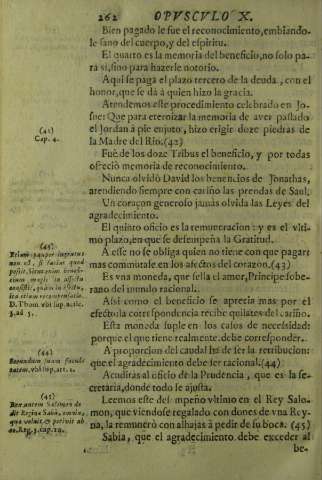 262 OPVSCVLO X.
Bien pagado le fue el reconocimiento, embiando-
le sano del cuerpo, y del espiritu.
El quarto es la memoria del beneficio, no solo pa-
ra si, sino para hazerle notorio.
Aqui se paga el plazo tercero de la deuda, con el
honor, que se dá á quien hizo la gracia.
Atendemos este procedimiento celebrado en Jo-
sue: Que para eternizar la memoria de aver passado
el Jordan á pie enjuto, hizo erigir doze piedras de
la Madre del Rio. (42)
Fué de los doze Tribus el beneficio, y por todas
ofreció memoria de reconocimiento.
Nunca olvidó David los beneficios de Jonathas,
atendiendo siempre con cariño las prendas de Saul.
Un coraçon generoso jamás olvida las Leyes del
agradecimiento.
El quinto oficio es la remuneracion: y es el vlti-
mo plazo, en que se desempeña la Gratitud.
A esse no se obliga quien no tiene con que pagar:
mas commutale en los afectos del coraçon. (43)
Es vna moneda, que sella el amor, Principe sobe-
rano del mundo racional.
Assi como el beneficio se aprecia mas por el
efecto: la correspondencia recibe quilates del cariño.
Esta moneda suple en los casos de necessidad:
porque el que tiene realmente debe corresponder.
A proporcion del caudal ha de ser la retribucion:
que el agradecimiento debe ser racional. (44)
Acreditas al oficio de la Prudencia, que es la se-
cretaria, donde todo le ajusta.
Leemos este desempeño vltimo en el Rey Salo-
mon, que viendose regalado con dones de vna Rey-
na, la remuneró con alhajas á pedir de su boca. (45)
Sabia, que el agradecimiento debe exceder al
be-
Cap. 4.
(43)
D. Thom. vbi sup. artic.
3. ad 5.
(44)
vbi sup. art. 2.
(45)
Rex autem Salomon de-
dit Reginæ Saba, omnia,
quæ voluit, & petivit ab
eo. Reg. 3. cap. 10.